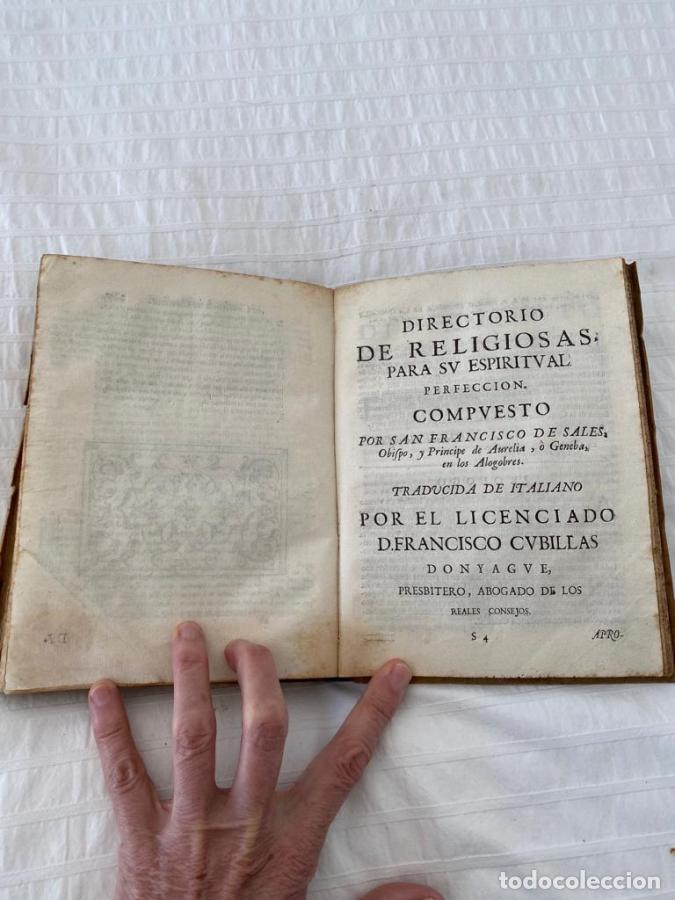 DIRECTORIO
DE RELIGIOSAS,
PARA SV ESPIRITVAL
PERFECCION.
COMPVESTO
POR SAN FRANCISCO DE SALES,
Obiſpo, y Principe de Aurelia, ò Geneba,
en los Alogobres.
TRADUCIDA DE ITALIANO
POR EL LICENCIADO
D.FRANCISCO CVBILLAS
DONYAGVE,
PRESBITERO, ABOGADO DE LOS
REALES CONSEJOS.
S 4 APRO-
todocoleccion